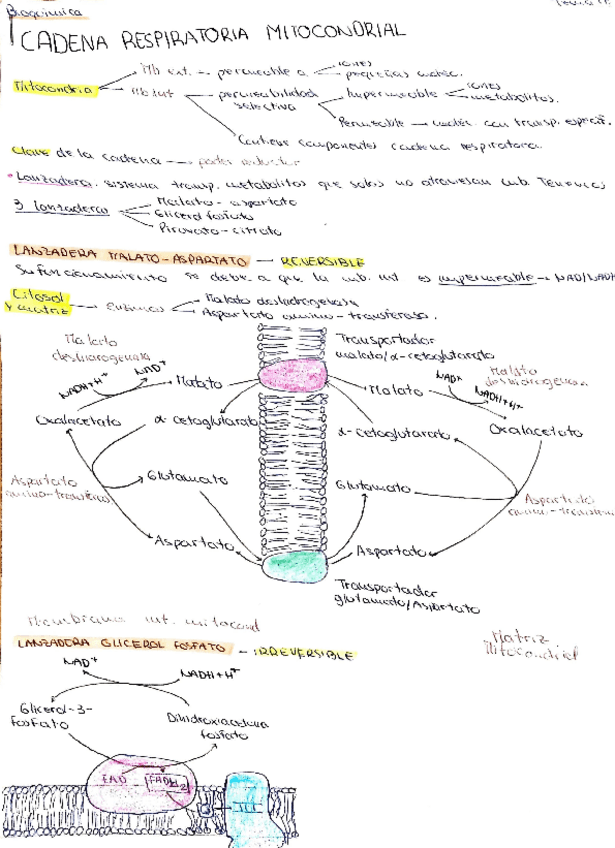 Bioquímica
CADENA RESPIRATORIA MITOCONDRIAL
Mitocondria
Mb ext. - permeable a
iones
pequeñas moléc.
Mb int
permeabilidad selectiva
Impermeable
iones
metabolitos.
Permeable → moléc. con transp. específ.
Contiene componentes cadena respiratoria.
Clave de la cadena → poder reductor
Lanzadera. sistema transp. metabolitos que solos no atraviesan mb.
3 lanzaderas
Malato - aspartato
Glicerol fosfato
Piruvato - citrato
LANZADERA MALATO-ASPARTATO - REVERSIBLE
Su funcionamiento se debe a que la mb. int es impermeable → NAD/NADH
Citosol y matriz - enzimas
Malato deshidrogenasa
Aspartato amino-transferasa.
Malato deshidrogenasa
NADH+H+
NAD+
Malato
Oxalacetato
α-cetoglutarato
Aspartato amino-transferasa
Glutamato
Aspartato
Transportador malato/α-cetoglutarato
Malato
NAD+
Malato deshidrogenasa
NADH+H+
Oxalacetato
α-cetoglutarato
Glutamato
Aspartato amino-transferasa
Aspartato
Transportador glutamato/Aspartato
Membrana int. mitocond
Matriz Mitocondrial
LANZADERA GLICEROL FOSFATO - IRREVERSIBLE
NAD+
NADH+H+
Glicerol-3-fosfato
Dihidroxiacetona fosfato
FAD
FADH2
III